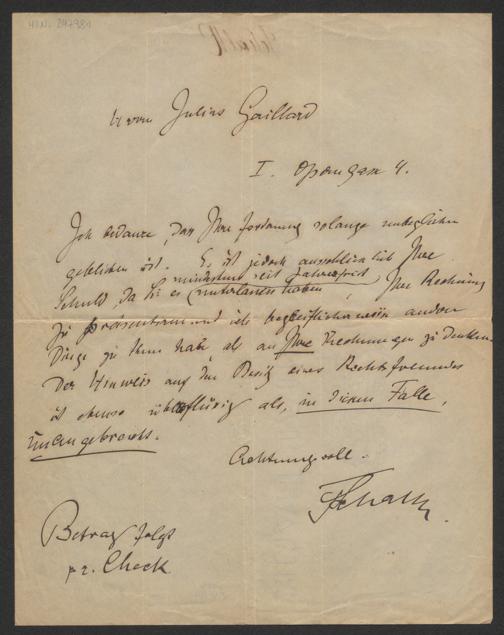 H.I.N. 247981
Herrn Julius Gaillard
I. Operngasse 4.
Ich bedaure, dass Ihre Forderung solange unbeglichen
geblieben ist. Es ist jedoch ausschließlich Ihre
Schuld, da Sie es mindestens seit Jahresfrist unterlassen haben, Ihre Rechnung
zu präsentieren und ich begreiflicherweise andere
Dinge zu thun habe, als an Ihre Rechnungen zu denken.
Der Hinweis auf den Besitz eines Rechtsfreundes
ist ebenso überflüssig als, in diesem Falle,
unangebracht.
Achtungsvoll
Betrag folgt
pr. Check